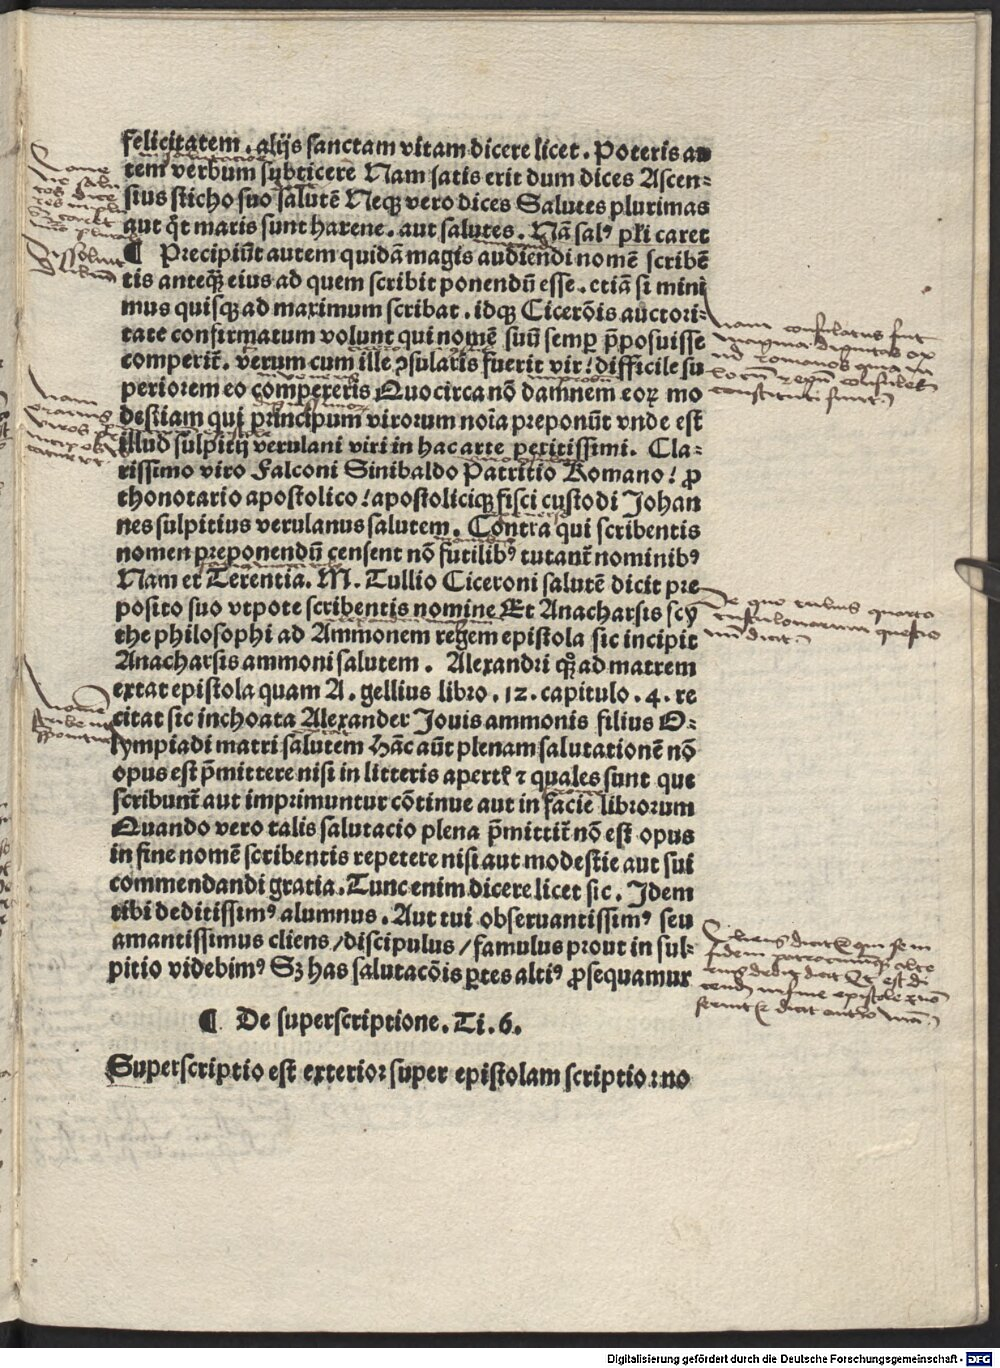 felicitatem . alijs sanctam vitam dicere licet . Poteris au
tem verbum subticere Nam satis erit dum dices Ascen⸗
sius sticho suo salutē Neqꝫ vero dices Salutes plurimas
aut q̄t maris sunt harene . aut salutes . Nā salꝰ pl̄i caret
¶ Precipiūt autem quidā magis audiendi nomē scribē
tis anteqꝫ eius ad quem scribit ponendū esse . etiā si mini
mus quisqꝫ ad maximum scribat . idqꝫ Cicerōis auctori⸗
tate confirmatum volunt qui nomē suū semꝑ p̄posuisse
comperit̄ . verum cum ille ꝯsularis fuerit vir : difficile su
periorem eo compereris Quocirca nō damnem eoꝝ mo
destiam qui principum virorum noīa preponūt vnde est
illud sulpitij verulani viri in hac arte peritissimi . Cla⸗
rissimo viro Falconi Sinibaldo Patritio Romano : ꝓ
thonotario apostolico : apostoliciqꝫ fisci custodi Johan
nes sulpitius verulanus salutem . Contra qui scribentis
nomen preponendū censent nō futilibꝰ tutant̄ nominibꝰ
Nam et Terentia . M . Tullio Ciceroni salutē dicit pre
posito suo vtpote scribentis nomine Et Anacharsis scy
the philosophi ad Ammonem regem epistola sic incipit
Anacharsis ammoni salutem . Alexandri qꝫ ad matrem
extat epistola quam A . gellius libro . 12 . capitulo . 4 . re
citat sic inchoata Alexander Jouis ammonis filius O⸗
lympiadi matri salutem Hāc aūt plenam salutationē nō
opus est p̄mittere nisi in litteris apert̄ ⁊ quales sunt que
scribunt̄ aut imprimuntur cōtinue aut in facie librorum
Quando vero talis salutacio plena p̄mittit̄ nō est opus
in fine nomē scribentis repetere nisi aut modestie aut sui
commendandi gratia . Tunc enim dicere licet sic . Idem
tibi deditissimꝰ alumnus . Aut tui obseruantissimꝰ seu
amantissimus cliens / discipulus / famulus prout in sul⸗
pitio videbimꝰ Sꝫ has salutacōis ꝑtes altiꝰ ꝓsequamur
¶ De superscriptione . Ti . 6 .
Superscriptio est exterior super epistolam scriptio : no
nam consulatus fuit
magna dignitas ap
ud romanos quia in
locum regum consules
constituti sunt
De quo tulius quarto
tusculanarum questio
Digitalisierung gefördert durch die Deutsche Forschungsgemeinschaft - DFG